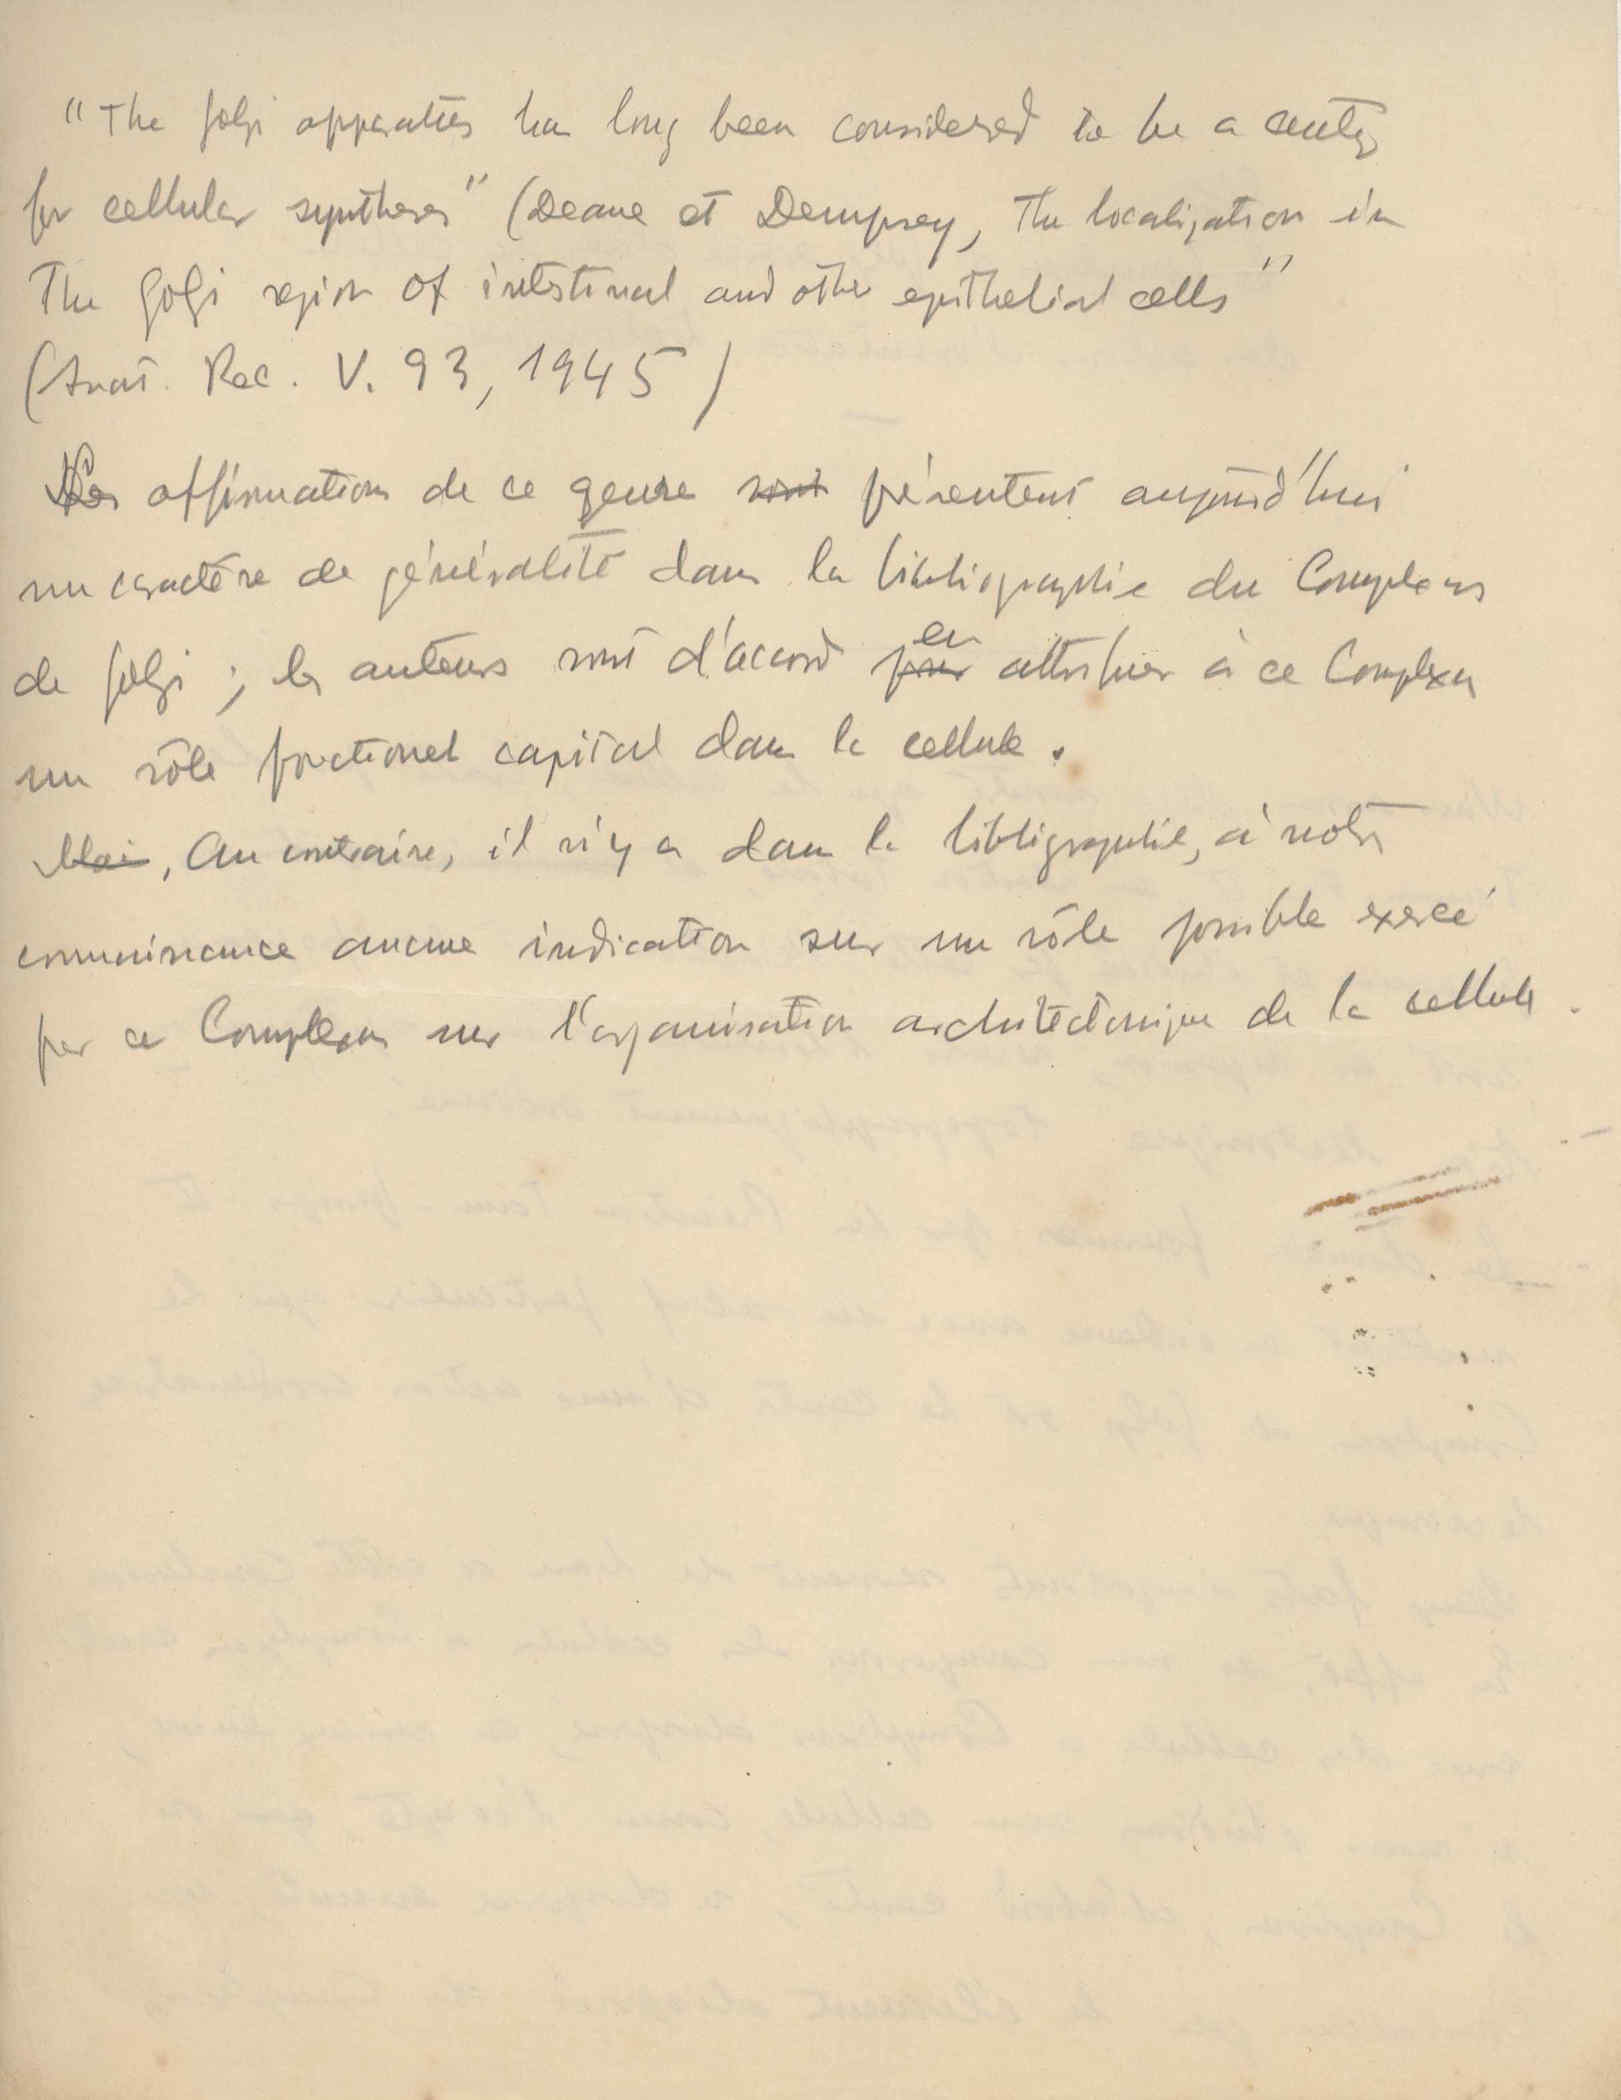 "The Golgi apparatus has long been considered to be a center
for cellular syntheses" (Deane et Dempsey, The localization in
The Golgi region of intestinal and other epithelial cells"
(Anat. Rec. V. 93, 1945)
Les affirmations de ce genre sont présentent aujourd'hui
un caractère de généralité dans la bibliographie du Complexus
de Golgi ; les auteurs sont d'accord pour en attribuer à ce Complexus
un rôle fonctionel capital dans la cellule.
Mais, Au contraire, il n'y a dans la bibligraphie, à notre
connaissance aucune indication sur un rôle possible exercé
par ce Complexus sur l'organisation architectonique de la cellule.